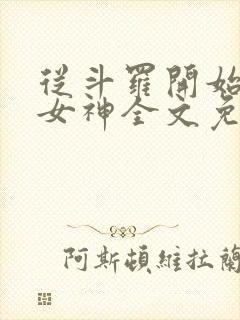 從斗羅開始
女神全文免
阿斯頓維拉蘭